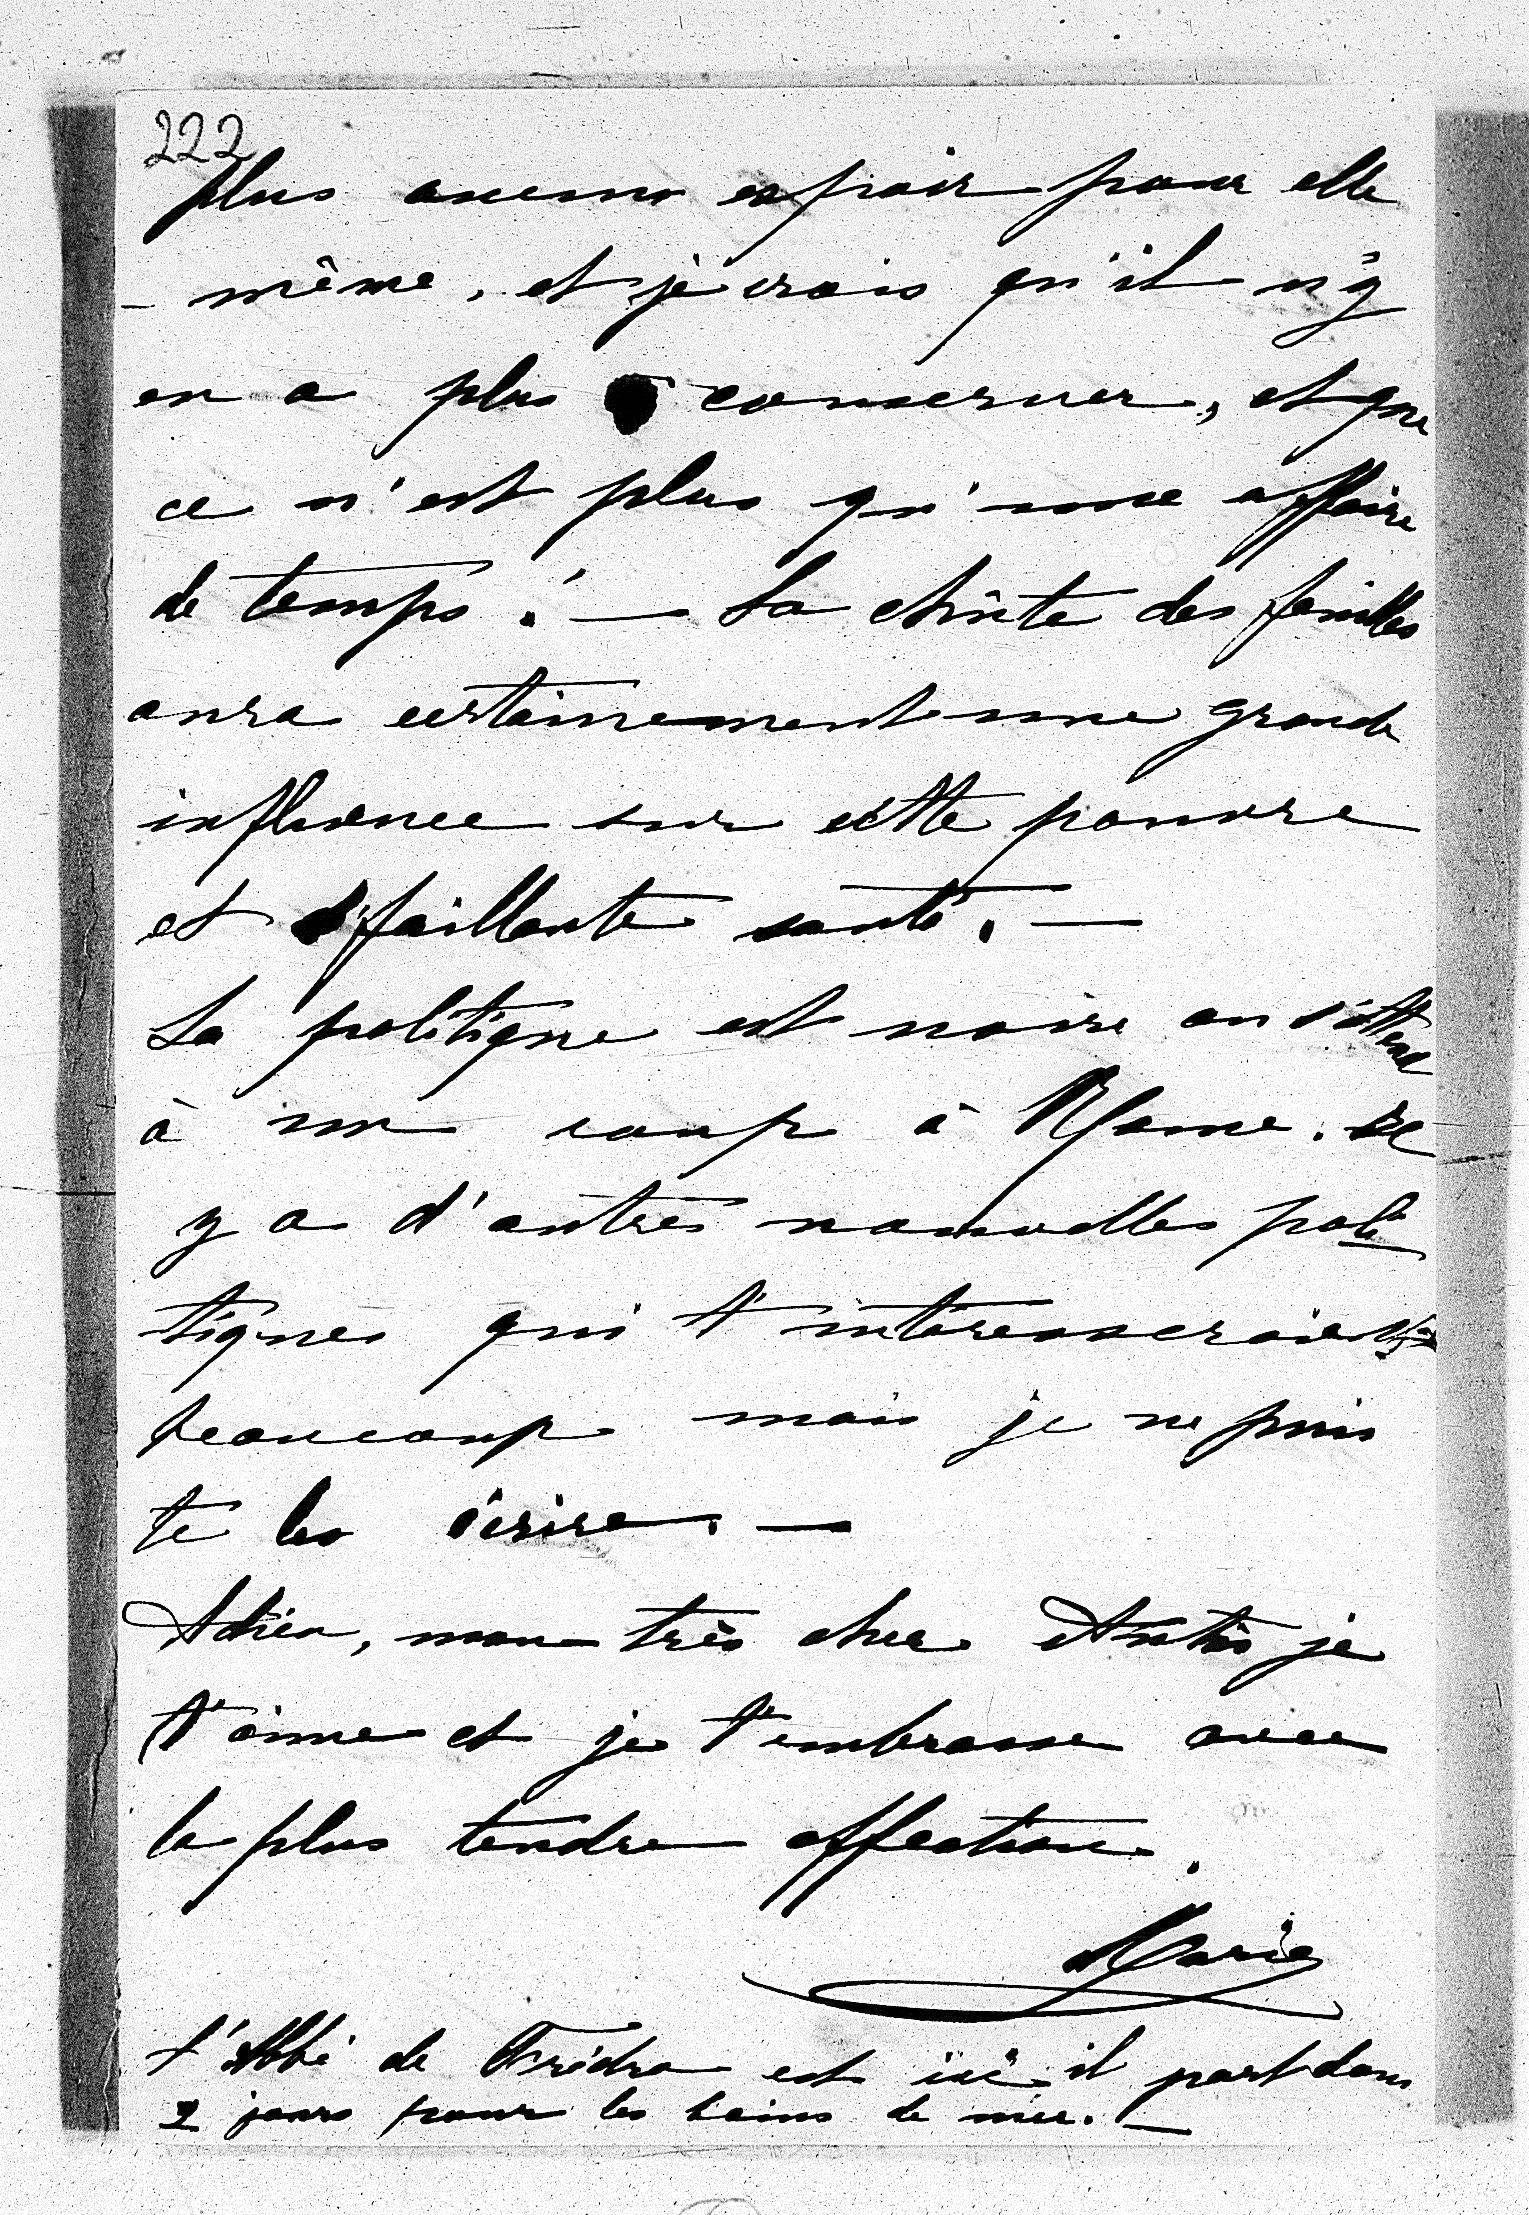 222
plus aucun espoir pour elle
- même, et je crois qu'il n'y
en a plus conserver, et que
ce n'est plus qu'une affaire
de temps ! — La chûte des feuilles
aura certainement une grande
influence sur cette pauvre
et défaillante santé. —
La politique est noire on s'attend
à un coup à Rome. Il
y a d'autres nouvelles poli
tiques qui t'intéresseraient
beaucoup mais je ne puis
te les écrire. —
Adieu, mon très cher je
t'aime et je t'embrasse avec
la plus tendre affection.
Marie
L'Abbé de est ici il part dans
2 jours pour les bains de mer. —